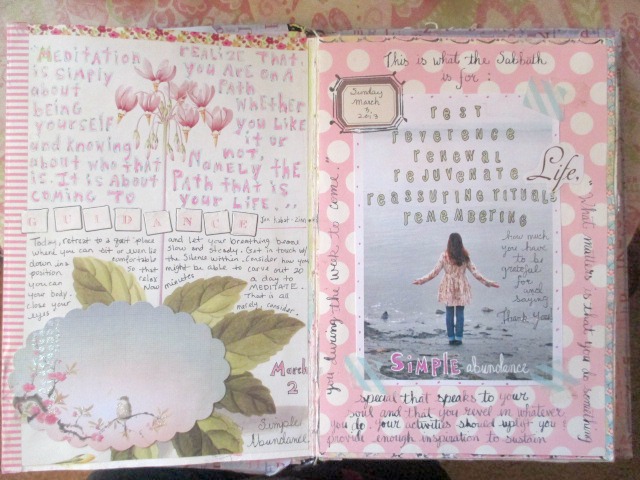 Meditation
is simply
about
being
yourself
and knowing
about who that
is. It is About
coming to
REALIZE THAT
you ARE on A
PATH
WHETHER
you LIKE
it or
not,
NAMELY the
PATH that is
your LIFE...
GUIDANCE
Jon Kabat-Zinn
Today, retreat to a quiet place
where you can sit or even lie
down in a comfortable
position so that
you can relax
your body. Now
close your
eyes
and let your breathing become
slow and steady. Get in touch with
the Silence within. Consider how you
might be able to carve out 20
minutes a day to
MEDITATE.
That is all
merely consider.
March
2
Simple
Abundance
This is what the Sabbath
is for:
Sunday
March
3,
rest
reverence
renewal
rejuvenate
reassuring rituals
remembering
Life.
how much
you have
to be
grateful
for
and
saying
Thank you
SIMPLE abundance
"What matters is that you do something
special that speaks to your
soul and that you revel in whatever
you do. Your activities should uplift you &
provide enough inspiration to sustain
you during the week to come."